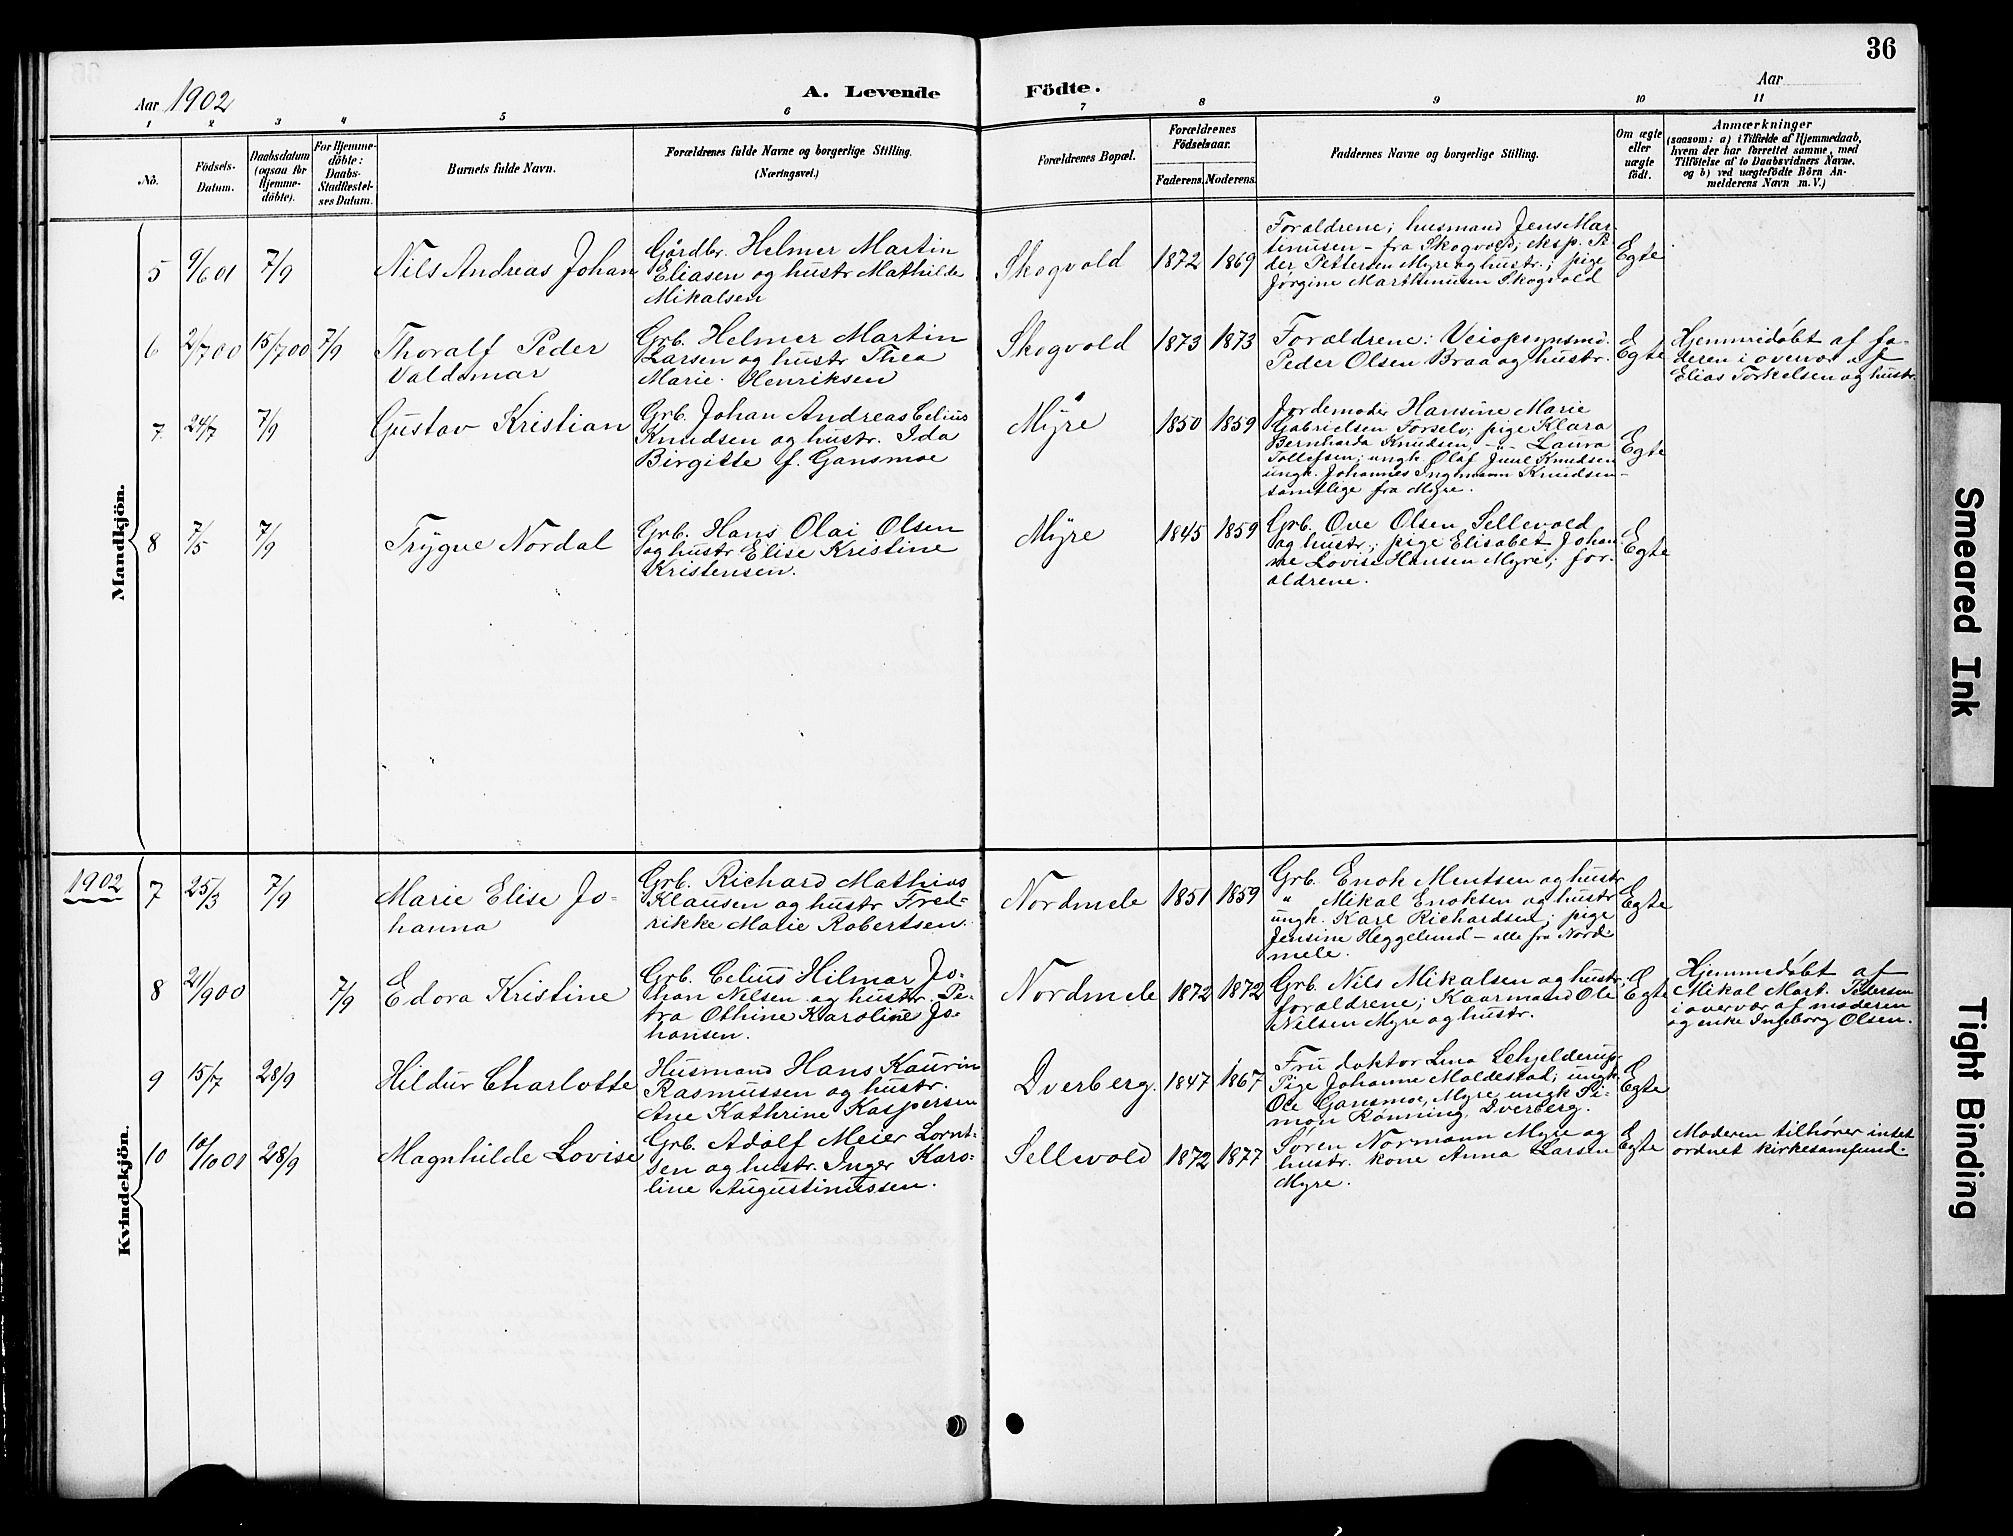 36
Aar 1902
A. Levende Födte.
Aar
1 2 3 4 5 6 7 8 9 10 11
No.
Födsels-
Datum.
Daabsdatum
(ogsaa for
Hjemme-
døbte).
For Hjemme-
døbte:
Daabs-
Stadfæstel-
ses Datum.
Barnets fulde Navn.
Forældrenes fulde Navne og borgerlige Stilling.
(Næringsvei.)
Forældrenes Bopæl.
Forældrenes
Födselsaar.
Faderens. Moderens.
Faddernes Navne og borgerlige Stilling.
Om ægte
eller
uægte
født.
Anmærkninger
(saasom: a) i Tilfælde af Hjemmedaab,
hvem der har forrettet samme, med
Tilföielse af to Daabsvidners Navne.
og b) ved uægtefödte Börn An-
melderens Navn m. V.)
Mandkjön.
5 9/6 01 7/9
Nils Andreas Johan
Gårdbr. Helmer Martin
Eliasen og hustr Mathilde
Mikalsen
Skogvold 1872 1869
Foraldrene; husmand Jens Mar-
tinusen - fra Skogvold; eksp. Pe-
der Pettersen Myre og hustr.; pige
Jørgine Marthinusen Skogvold
Egte
6 2/7 00 15/7 00 7/9
Thoralf Peder
Valdemar
Grb. Helmer Martin
Larsen og hustr Thea
Marie Henriksen
Skogvold 1873 1873
Foraldrene: Veiopsynsmd.
Peder Olsen Braa og hustr.
Egte
Hjemmedøbt af fa-
deren i overvær af
Elias Torkelsen og hustr.
7 24/7 7/9
Gustav Kristian
Grb. Johan Andreas Celius
Knudsen og hustr. Ida
Birgitte f. Gansmoe
Myre 1850 1859
Jordemoder Hansine Marie
Gabrielsen Forselv; pige Klara
Bernharda Knudsen, -"- Laura
Tollefsen; ungk. Olaf Juul Knudsen
ungk. Johannes Ingemann Knudsen -
samtlige fra Myre.
Egte
8 7/5 7/9
Trygve Nordal
Grb. Hans Olai Olsen
og hustr Elise Kristine
Kristensen.
Myre 1845 1859
Grb. Ove Olsen Sellevold
og hustr.; pige Elisabet Johan
ne Lovise Hansen Myre; for-
aldrene.
Egte
Kvindekjön.
1902 7 25/3 7/9
Marie Elise Jo-
hanna
Grb. Richard Mathias
Klausen og hustr Fred-
rikke Marie Robertsen.
Nordmele 1851 1859
Grb. Enok Mentsen og hustr
" Mikal Enoksen og hustr
ungk. Karl Richardsen; pige
Jensine Heggelund - alle fra Nord
mele.
Egte
8 21/9 00 7/9
Edora Kristine
Grb. Celius Hilmar Jo-
han Nilsen og hustr. Pe-
tra Othine Karoline Jo-
hansen.
Nordmele 1872 1872
Grb. Nils Mikalsen og hustr.
foraldrene; Kaarmand Ole
Nilsen Myre og hustr.
Egte
Hjemmedøbt af
Mikal Mart. Pedersen
i overvær af moderen
og enke Ingeborg Olsen.
9 15/7 28/9
Hildur Charlotte
Husmand Hans Kaurin
Rasmussen og hustr.
Ane Kathrine Kaspersen
Dverberg. 1847 1867
Fru doktor Lena Schjelderup
Pige Johanne Moldestad; ungk
Ole Gansmoe, Myre, ungk Si-
mon Rønning, Dverberg.
Egte
10 10/10 01 28/9
Magnhilde Lovise
Grb. Adolf Meier Lornt-
sen og hustr. Inger Karo-
line Augustinussen.
Sellevold 1872 1877
Søren Normann Myre og
hustr. kone Anna Larsen
Myre.
Egte
Moderen tilhører intet
ordnet kirkesamfund.
Smeared Ink
Tight Binding